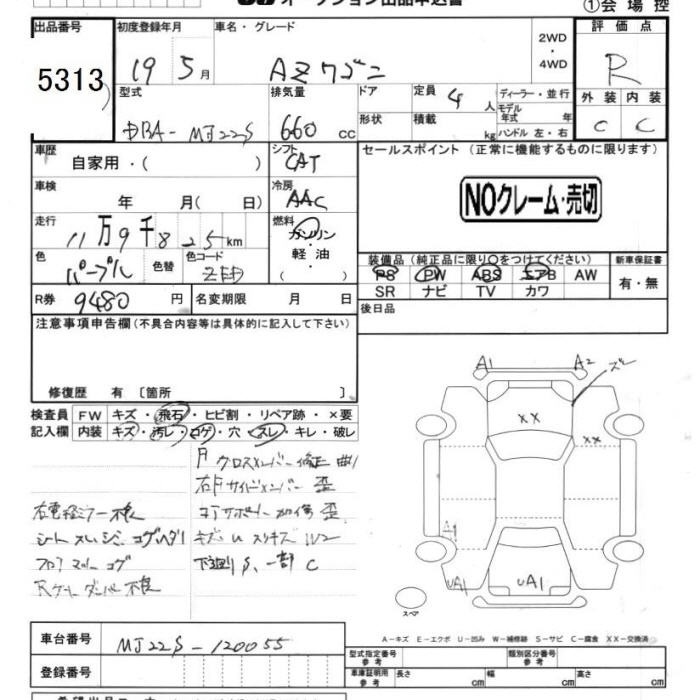 オークション出品申込書
①会場控
出品番号 初度登録年月 車名・グレード 2WD ・ 4WD 評価点
5313 19 5月 AZワゴン R
型式 排気量 ドア 定員 4 人 ディーラー・並行 外装 内装
モデル年式 年
DBA-MJ22S 660 cc 形状 積載 kg ハンドル 左・右 C C
車歴 自家用・( ) シフト CAT セールスポイント (正常に機能するものに限ります)
車検 年 月( 日) 冷房 AAC NOクレーム・売切
走行 11万9千825km 燃料 ガソリン・軽油・
色 パープル 色替 色コード ZED 装備品(純正品に限り○をつけてください) 新車保証書
PS PW ABS エアB AW 有・無
R券 9480円 名変期限 月 日 SR ナビ TV カワ
後日品
注意事項申告欄(不具合内容等は具体的に記入して下さい)
修復歴 有 〔箇所 〕
検査員 FW キズ・飛石・ヒビ割・リペア跡・×要
記入欄 内装 キズ・汚レ・コゲ・穴・スレ・キレ・破レ
A1 A2
XX
XX
A1
UA1 UA1
スペア
クロスメンバー修正 曲
右Fサイドメンバー 歪
コアサポート 加修 歪
右電格ミラー不良
シート スレ シミ コゲ
フロアマット コゲ
Rゲートダンパー不良
下廻りS、一部C
A-キズ E-エクボ U-凹み W-補修跡 S-サビ C-腐食 XX-交換済
車台番号 MJ22S-120055 型式指定番号 参考 類別区分番号 参考
登録番号 車庫証明用 参考 長さ cm 幅 cm 高さ cm